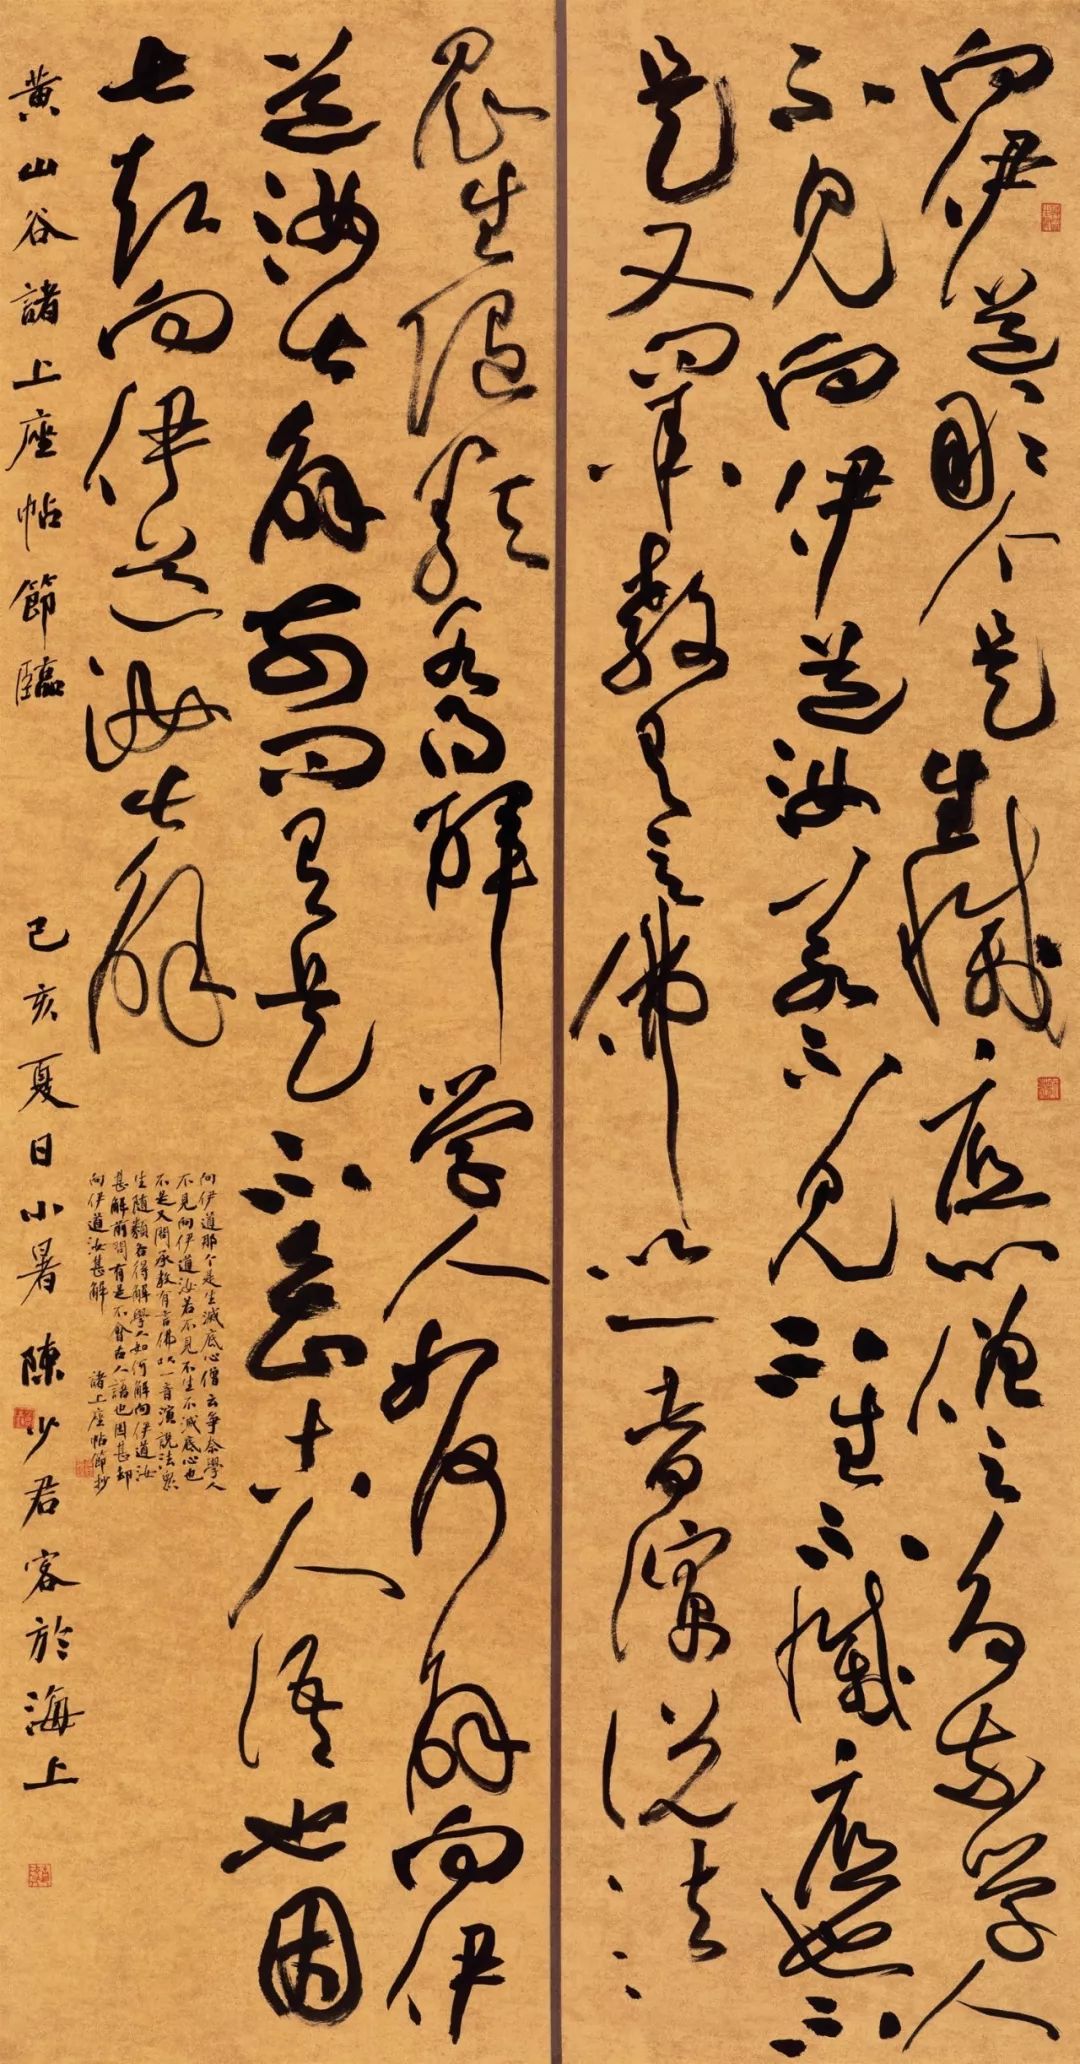 向伊道那个是生滅底心僧云争奈学人
不見向伊道汝若不見不生不滅底也不
是又問承教有言佛以一音演説法
衆生隨類各得解学人如何解向伊
道汝甚解前問有是不會古人語也因
甚却向伊道汝甚解
向伊道那个是生滅底心僧云争奈學人
不見向伊道汝若不見不生不滅底心也
不是又問承教有言佛以一音演説法衆
生隨類各得解學人如何解向伊道汝
甚解前問有是不會古人語也因甚却
向伊道汝甚解 諸上座帖節抄
黄山谷諸上座帖節臨 己亥夏日小暑陳少君客於海上